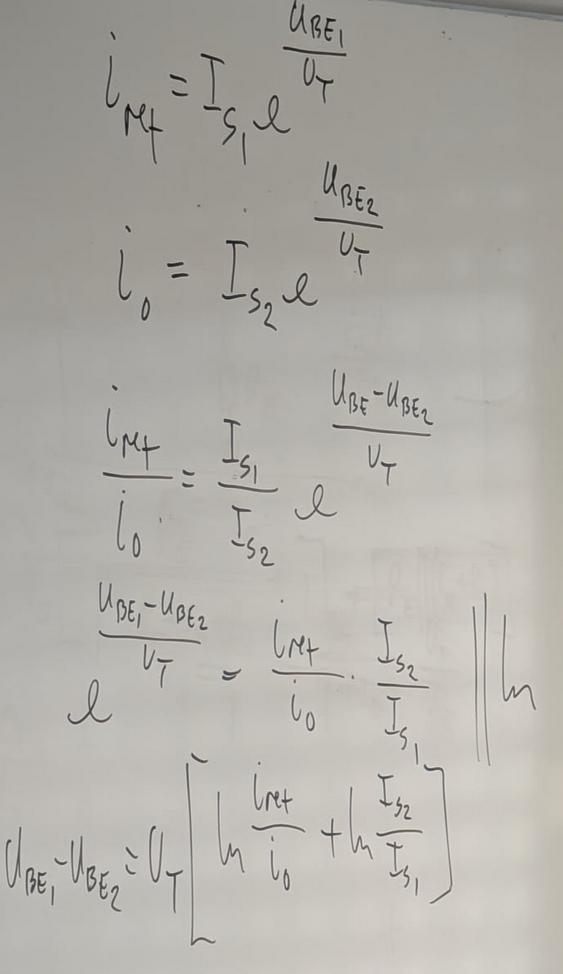 i_ref = I_S1 e^(u_BE1/U_T)
i_0 = I_S2 e^(u_BE2/U_T)
i_ref/i_0 = I_S1/I_S2 e^((u_BE-u_BE2)/U_T)
e^((u_BE1-u_BE2)/U_T) = i_ref/i_0 · I_S2/I_S1 || ln
U_BE1-U_BE2 = U_T [ln i_ref/i_0 + ln I_S2/I_S1]